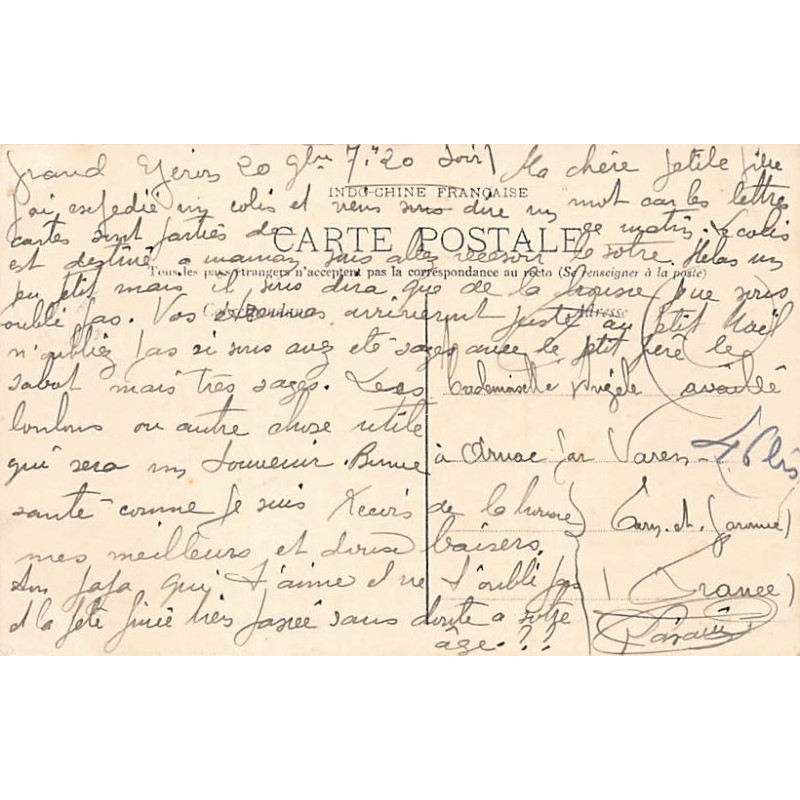 20 7h20 soir) Ma chère petite fille
INDO-CHINE FRANÇAISE
j'ai expédié un colis et viens vous dire un mot car les lettres
cartes sont parties de ce matin. Le colis
CARTE POSTALE
est destiné a maman vous allez recevoir le votre. Helas un
Tous les pays étrangers n'acceptent pas la correspondance au recto (Se renseigner à la poste)
peu petit mais il vous dira que de la brousse je ne vous
oublie pas. Vos arriveront juste au petit Noël
Correspondance Adresse
n'oubliez pas si vous avez été sages avec le petit père le
sabot mais très sages. Les
bonbons ou autre chose utile
qui sera un souvenir. Bonne
santé comme je suis Reçois de la brousse
mes meilleurs et doux baisers.
Ton papa qui t'aime et ne t'oublie pas
et la fête finie très passée sans doute a votre
âge. ??
Mademoiselle Angèle
à par Varen
Tarn et Garonne)
(France)